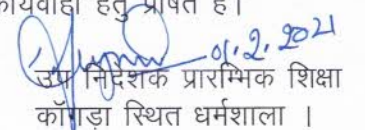 कार्यवाही हेतु प्रेषित है।
01.2.2021
उप निदेशक प्रारम्भिक शिक्षा
काँगड़ा स्थित धर्मशाला ।